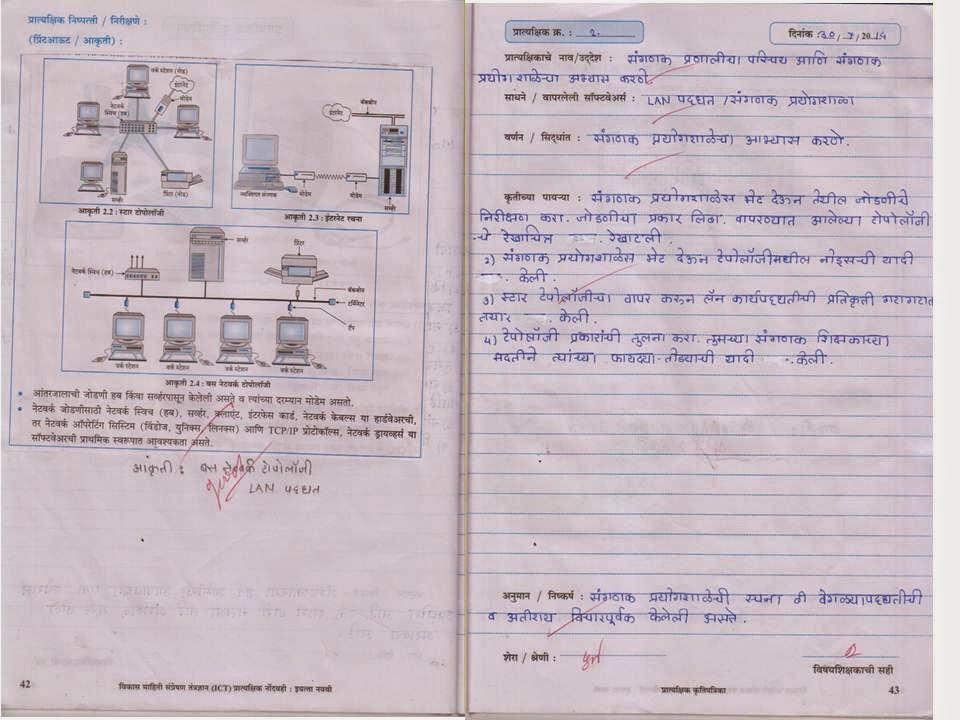 प्रात्यक्षिक निष्पत्ती / निरीक्षणे :
(प्रिंटआऊट / आकृती) :
वर्क स्टेशन (नोड)
इंटरनेट
मोडेम
नेटवर्क
स्विच (हब)
सर्व्हर
प्रिंटर (नोड)
आकृती 2.2 : स्टार टोपोलॉजी
इंटरनेट
बॅकबोन
मोडेम
मोडेम
सर्व्हर
आकृती 2.3 : इंटरनेट रचना
सर्व्हर
प्रिंटर
नेटवर्क स्विच (हब)
बॅकबोन
टर्मिनेटर
टॅप
वर्क स्टेशन
वर्क स्टेशन
वर्क स्टेशन
वर्क स्टेशन
आकृती 2.4 : बस नेटवर्क टोपोलॉजी
• आंतरजालाची जोडणी हब किंवा सर्व्हरपासून केलेली असते व त्यांच्या दरम्यान मोडेम असतो.
• नेटवर्क जोडणीसाठी नेटवर्क स्विच (हब), सर्व्हर, क्लाएंट, इंटरफेस कार्ड, नेटवर्क केबल्स या हार्डवेअरची,
तर नेटवर्क ऑपरेटिंग सिस्टिम (विंडोज, युनिक्स, लिनक्स) आणि TCP/IP प्रोटोकॉल्स, नेटवर्क ड्रायव्हर्स या
सॉफ्टवेअरची प्राथमिक स्वरूपात आवश्यकता असते.
आकृती : बस नेटवर्क टोपोलॉजी
LAN पद्धत
42
विकास माहिती संप्रेषण तंत्रज्ञान (ICT) प्रात्यक्षिक नोंदवही : इयत्ता नववी
प्रात्यक्षिक क्र. : 2.
दिनांक : 30 / 7 / 2014
प्रात्यक्षिकाचे नाव/उद्देश : संगणक प्रणालीचा परिचय आणि संगणक
प्रयोगशाळेचा अभ्यास करणे.
साधने / वापरलेली सॉफ्टवेअर्स : LAN पद्धत / संगणक प्रयोगशाळा
वर्णन / सिद्धांत : संगणक प्रयोगशाळेचा अभ्यास करणे.
कृतीच्या पायऱ्या : संगणक प्रयोगशाळेस भेट देऊन तेथील जोडणीचे
निरीक्षण करा. जोडणीचा प्रकार लिहा. वापरण्यात आलेल्या टोपोलॉजी
चे रेखाचित्र रेखाटली.
2) संगणक प्रयोगशाळेस भेट देऊन टोपोलॉजीमधील नोड्सची यादी
केली.
3) स्टार टोपोलॉजीचा वापर करून लॅन कार्यपद्धतीची प्रतिकृती गटागटात
तयार केली.
4) टोपोलॉजी प्रकारांची तुलना करा. तुमच्या संगणक शिक्षकाच्या
मदतीने त्यांच्या फायद्या-तोट्याची यादी केली.
अनुमान / निष्कर्ष : संगणक प्रयोगशाळेची रचना ही वेगळ्यापद्धतीची
व अतीशय विचारपूर्वक केलेली असते.
शेरा / श्रेणी :
विषयशिक्षकाची सही
प्रात्यक्षिक कृतिपत्रिका
43